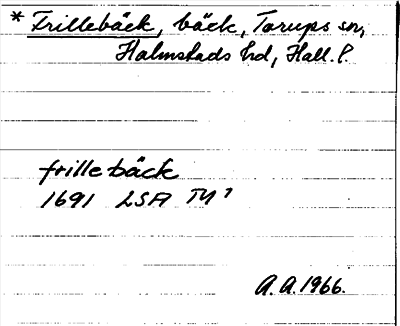 * Frillebäck, bäck, Torups sn,
Halmstads hd, Hall. l.
frillebäck
1691 LSA TY 1
A.A. 1966.